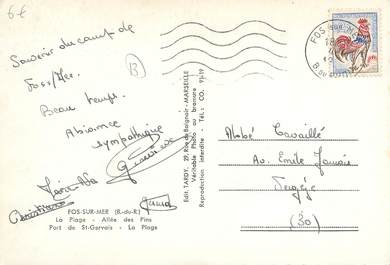 6€
Souvenir du camp de
Fos s/Mer.
Beau temps.
Ambiance
sympathique
B
FOS-SUR-MER (B.-du-R.)
La Plage - Allée des Pins
Port de St-Gervais - La Plage
Edit. TARDY, 29, Rue du Baignoir - MARSEILLE
Véritable Photo au bromure
Reproduction interdite - Tél.: CO. 91-19
FOS-SUR-MER
Abbé
Av. Emile Jamais
(30)